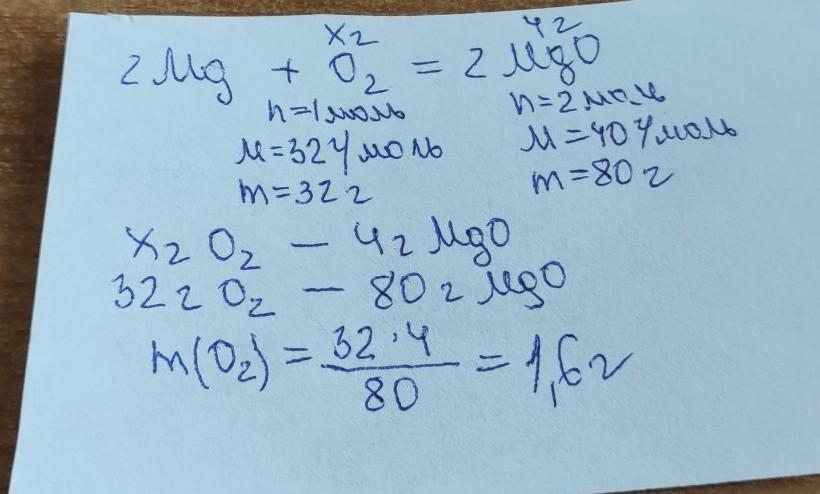 х г 4 г
2 Mg + O₂ = 2 MgO
n=1моль n=2моль
M=32 г/моль M=40 г/моль
m=32 г m=80 г
х г O₂ — 4 г MgO
32 г O₂ — 80 г MgO
m(O₂) = 32·4/80 = 1,6 г